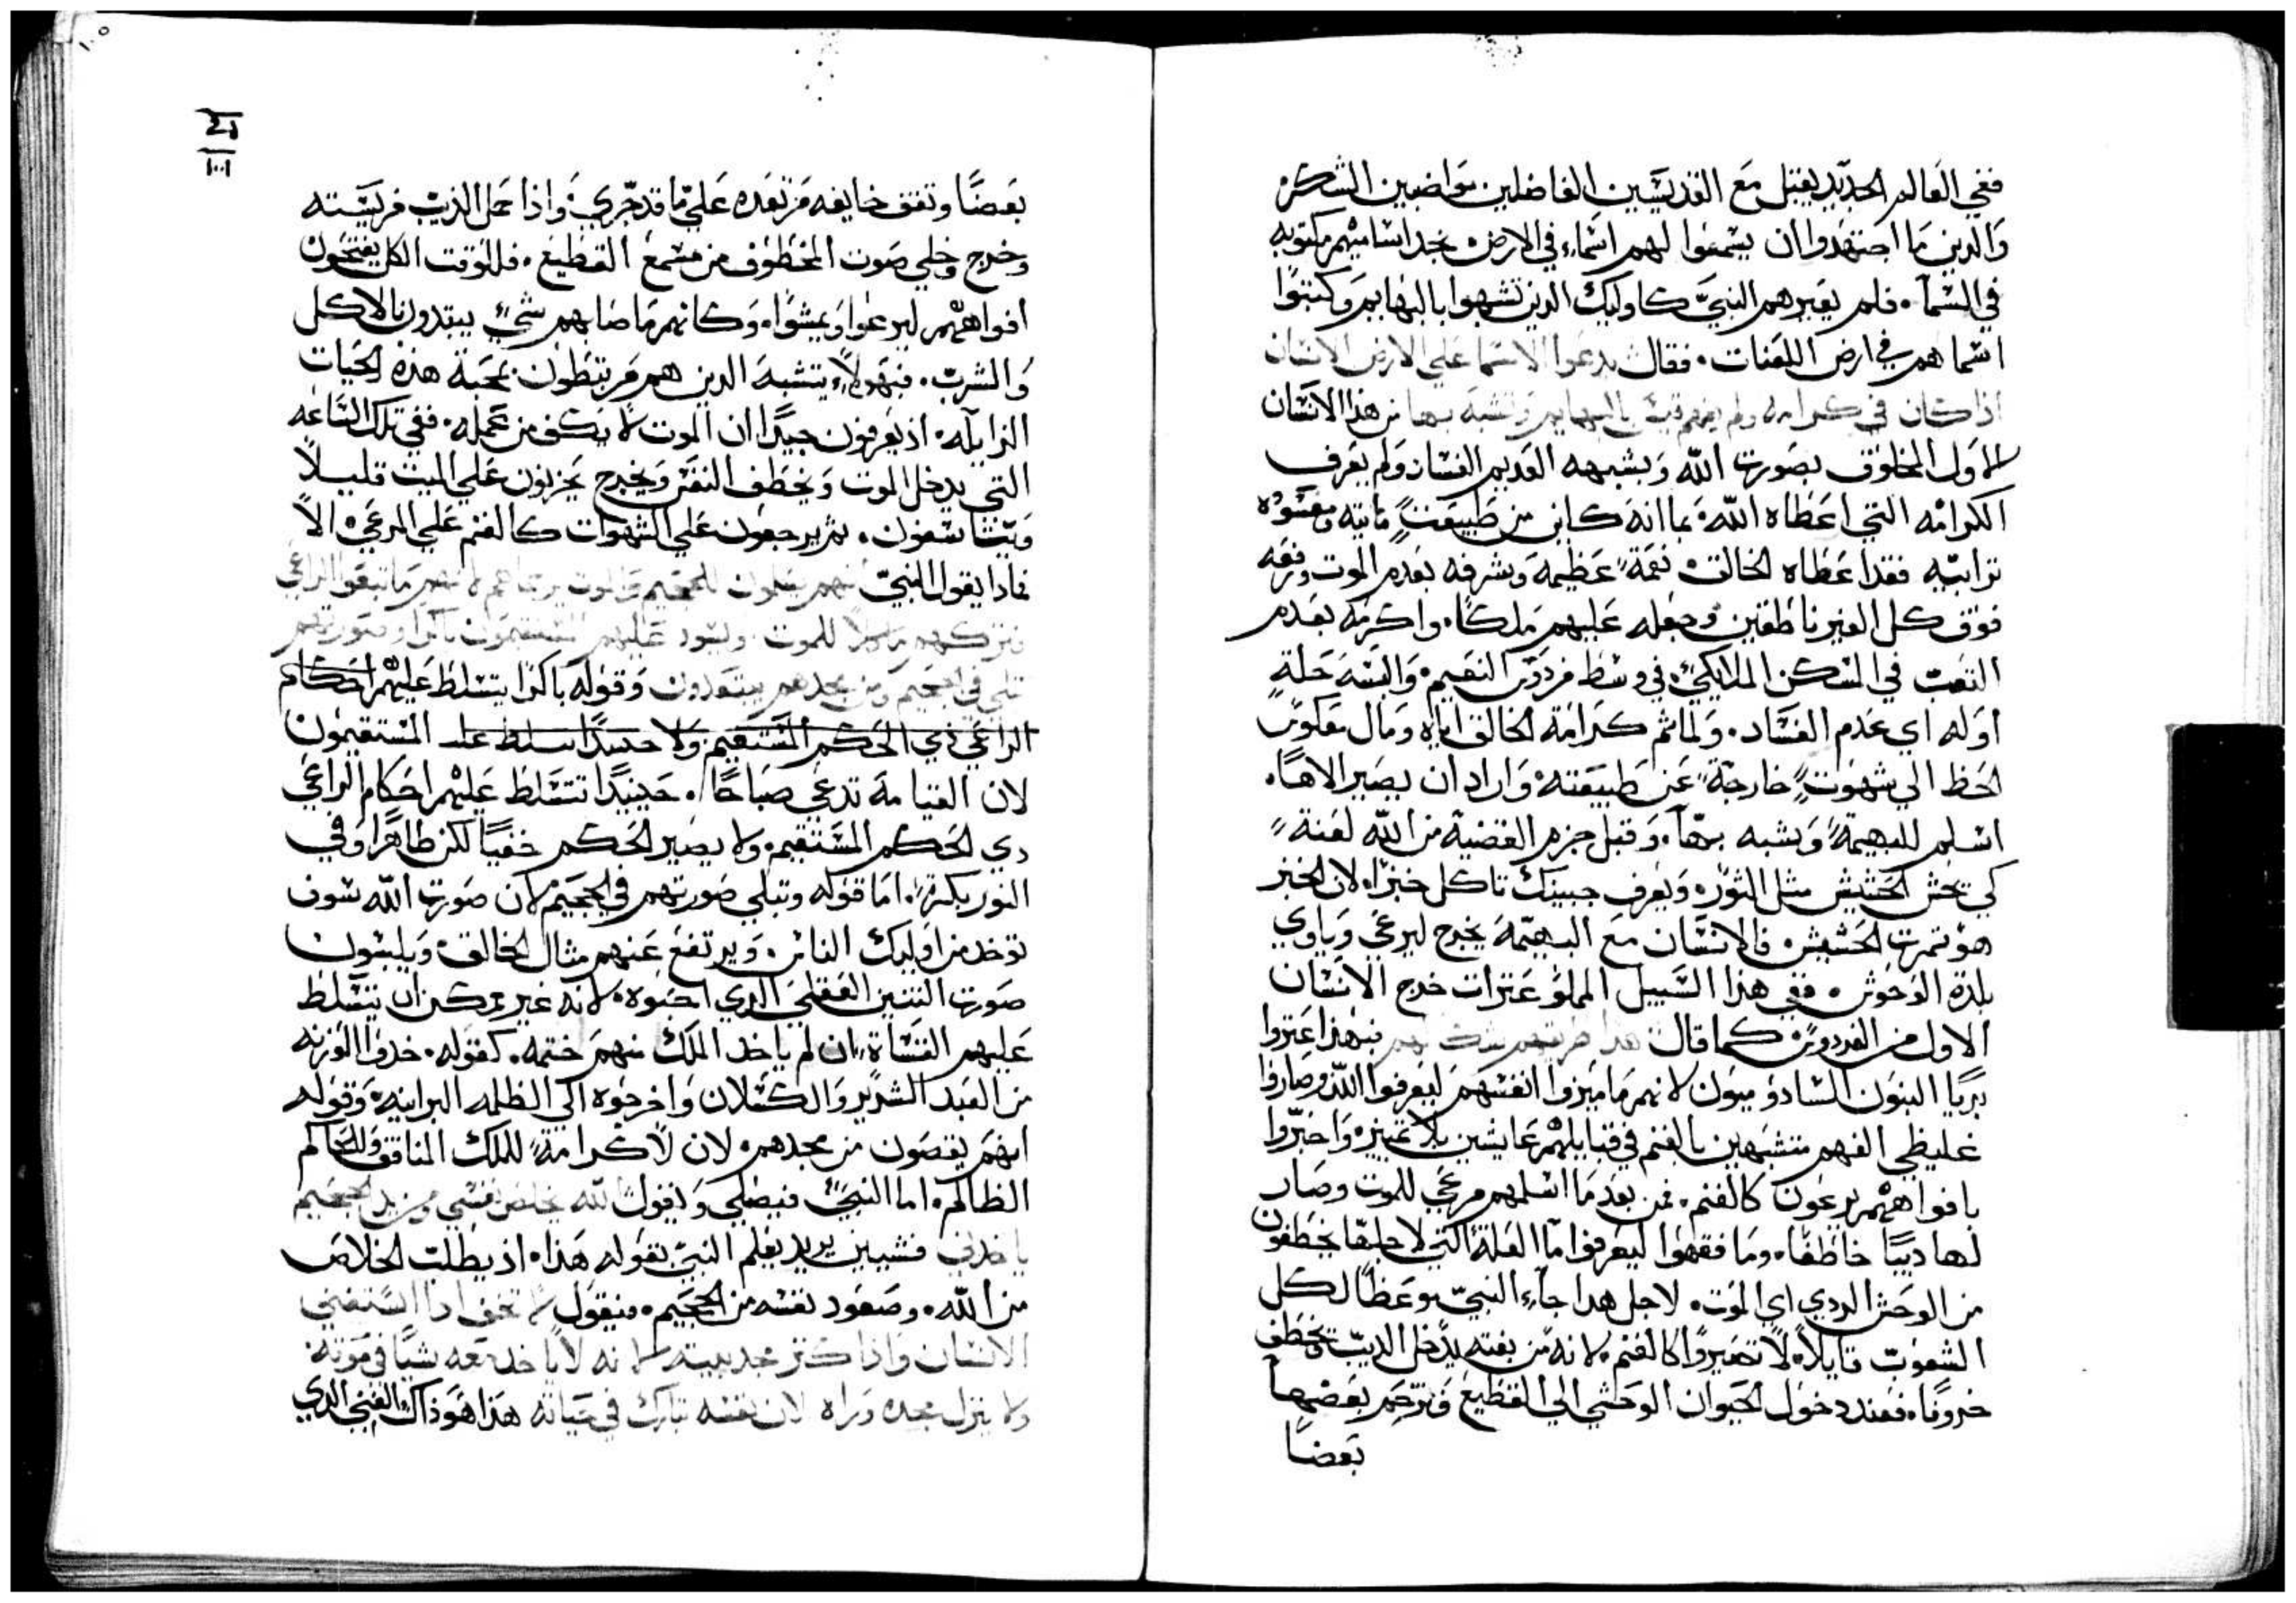 ففي العالم الجديد يقبل مع القديسين الفاضلين مواضبين الشكر
والدين ما اجتهدوا ان يسمعوا لهم اسماء في الارض نجد اساميهم مكتوبه
في السمآ. فلم يعيرهم النبي كاوليك الدين تشبهوا بالبهايم وكتبوا
اسماهم في ارض اللعنات. فقال يدعوا الاسما على الارض الانسان
اذ كان في كرامه ولم يفهم قيس بالبهايم وتشبه بها من هذا الانسان
الاول المخلوق بصورت الله وبشبهه العديم الفساد ولم يعرف
الكرامه التي اعطاه الله بما انه كاين من طبيعت مايته ومعتوه
ترابيه فقد اعطاه الخالق نعمة عظيمه وشرفه بعدم الموت ورفعه
فوق كل الغير ناطقين وجعله عليهم ملكا. واكرمه بعدم
التعب في المسكن الملايكي في وسط فردوس النعيم والبسه حلة
اوله اي عدم الفساد. ولما شم كرامة الخالق اياه ومال معكوس
الحظ الى شهوت خارجة عن طبيعته واراد ان يصير الاها.
اسلم للبهيمة وتشبه بها. وقبل جزم القضية من الله لعنة
كي تحش الحشيش مثل الثور وبعرف جبينك تاكل خبزا لان الخبز
هو تمرت الحشيش فالانسان مع البهيمة يخرج ليرعى وياوي
بلدة الوحوش. ففي هذا السبيل المملو عترات خرج الانسان
الاول من الفردوس كما قال هذا طريقهم شك لهم فبهذا عتروا
بريا البنون السادوميون لانهم ما ميزوا انفسهم ليعرفوا الله وصاروا
غليظي الفهم متشبهين بالغنم في قبايلهم عايشين بلا تمييز واجتروا
بافواههم يرعون كالغنم. فمن بعد ما اسلمهم مرعى للموت وصار
لها ديبا خاطفا. وما فقهوا ليعرفوا ما العلة التي لاجلها يخطفون
من الوحش الردي اي الموت. لاجل هدا جآء النبي يوعظا لكل
الشعوب قايلا لا تصيروا كالغنم لانه من بغته يدخل الديب يخطف
خروفا. فعند دخول الحيوان الوحشي الى القطيع فتزحم بعضها
بعضا
بعضا وتقف خايفه مرتعده على ما قد جري. واذا حمل الديب فريسته
وخرج وخلي صوت المخطوف من مسمع القطيع. فللوقت الكل يفتحون
افواههم ليرعوا ويمشوا. وكانهم ما صابهم شيء يبتدون بالاكل
والشرب. فبهولاء يتشبه الدين هم مرتبطون بمحبة هذه الحيات
الزايله. اذ يعرفون جيدا ان الموت لا يكف من عمله. ففي تلك الساعه
التي يدخل الموت ويخطف النفس ويخرج يحزنون على الميت قليلا
ويتاسفون. ثم يرجعون على الشهوات كالغنم على المرعى الا
فاذا يقول النبي انهم يسلمون للجحيم والموت يرعاهم لانهم ما تبعوا الراعي
فتركهم ماكلا للموت. ويسود عليهم المستقيمون باكرا وصورتهم
تبلى في الجحيم ومن مجدهم يبتعدون وقوله باكرا يتسلط عليهم احكام
الراعي ذي الحكم المستقيم ولا حينيدا تسلط على المستقيمون
لان القيامة تدعى صباحا. حينيدا تتسلط عليهم احكام الراعي
دي الحكم المستقيم. ولا يصير الحكم خفيا لكن ظاهرا وفي
النور بكرة. اما قوله وتبلي صورتهم في الجحيم لان صورت الله سوف
توخد من اوليك الناس. ويرتفع عنهم مثال الخالق ويلبسون
صورت التنين العقلي الدي احبوه. لانه غير ممكن ان يتسلط
عليهم الفساة ان لم ياخد الملك منهم ختمه. كقوله. خدوا الوزنه
من العبد الشرير والكسلان واخرجوه الى الظلمه البرانيه وقوله
انهم يقصون من مجدهم. لان لا كرامة للملك المنافق وللحاكم
الظالم. اما النبي فيصلي ويقول الله يخلص نفسي من يد الجحيم
ياخدني فشيين يريد يعلم النبي بقوله هذا. اذ يطلب الخلاص
من الله. وصعود نفسه من الجحيم. فيقول لا تخف ادا استغنى
الانسان واذا كثر مجد بيته لانه لا ياخد معه شيا في موته
ولا ينزل مجده وراه لان نفسه تبارك في حياته هذا هو ذاك الغني الدي